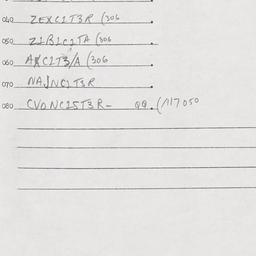 040 ZEXC1T3R (306
050 Z1B1C1TA (306
060 A C1T3/A (306
070 NA NC1T3R
080 CVDNC15T3R- QQ.(/117050